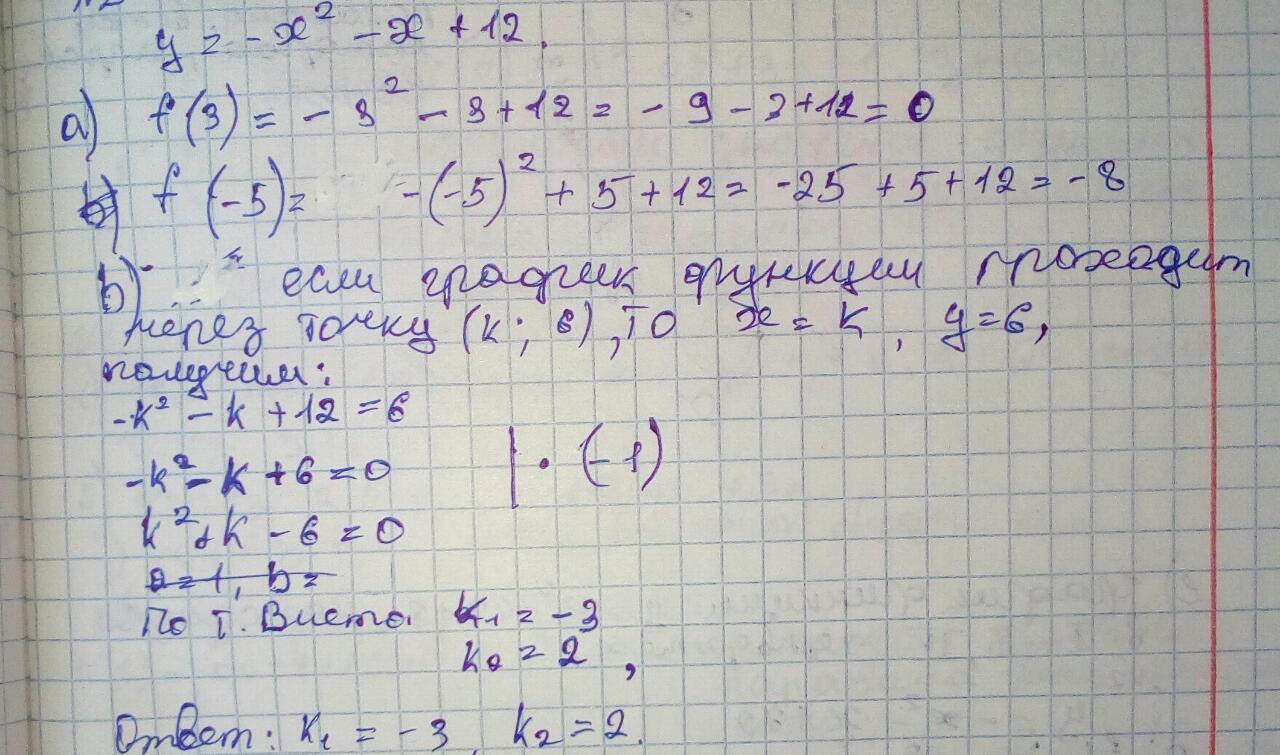 y = -x² - x + 12.
a) f(3) = -3² - 3 + 12 = -9 - 3 + 12 = 0
f(-5) = -(-5)² + 5 + 12 = -25 + 5 + 12 = -8
b) если график функции проходит
через точку (k; 6), то x = k, y = 6,
получим:
-k² - k + 12 = 6
-k² - k + 6 = 0 | · (-1)
k² + k - 6 = 0
a = 1, b =
По т. Виета k₁ = -3
k₂ = 2,
Ответ: k₁ = -3, k₂ = 2.